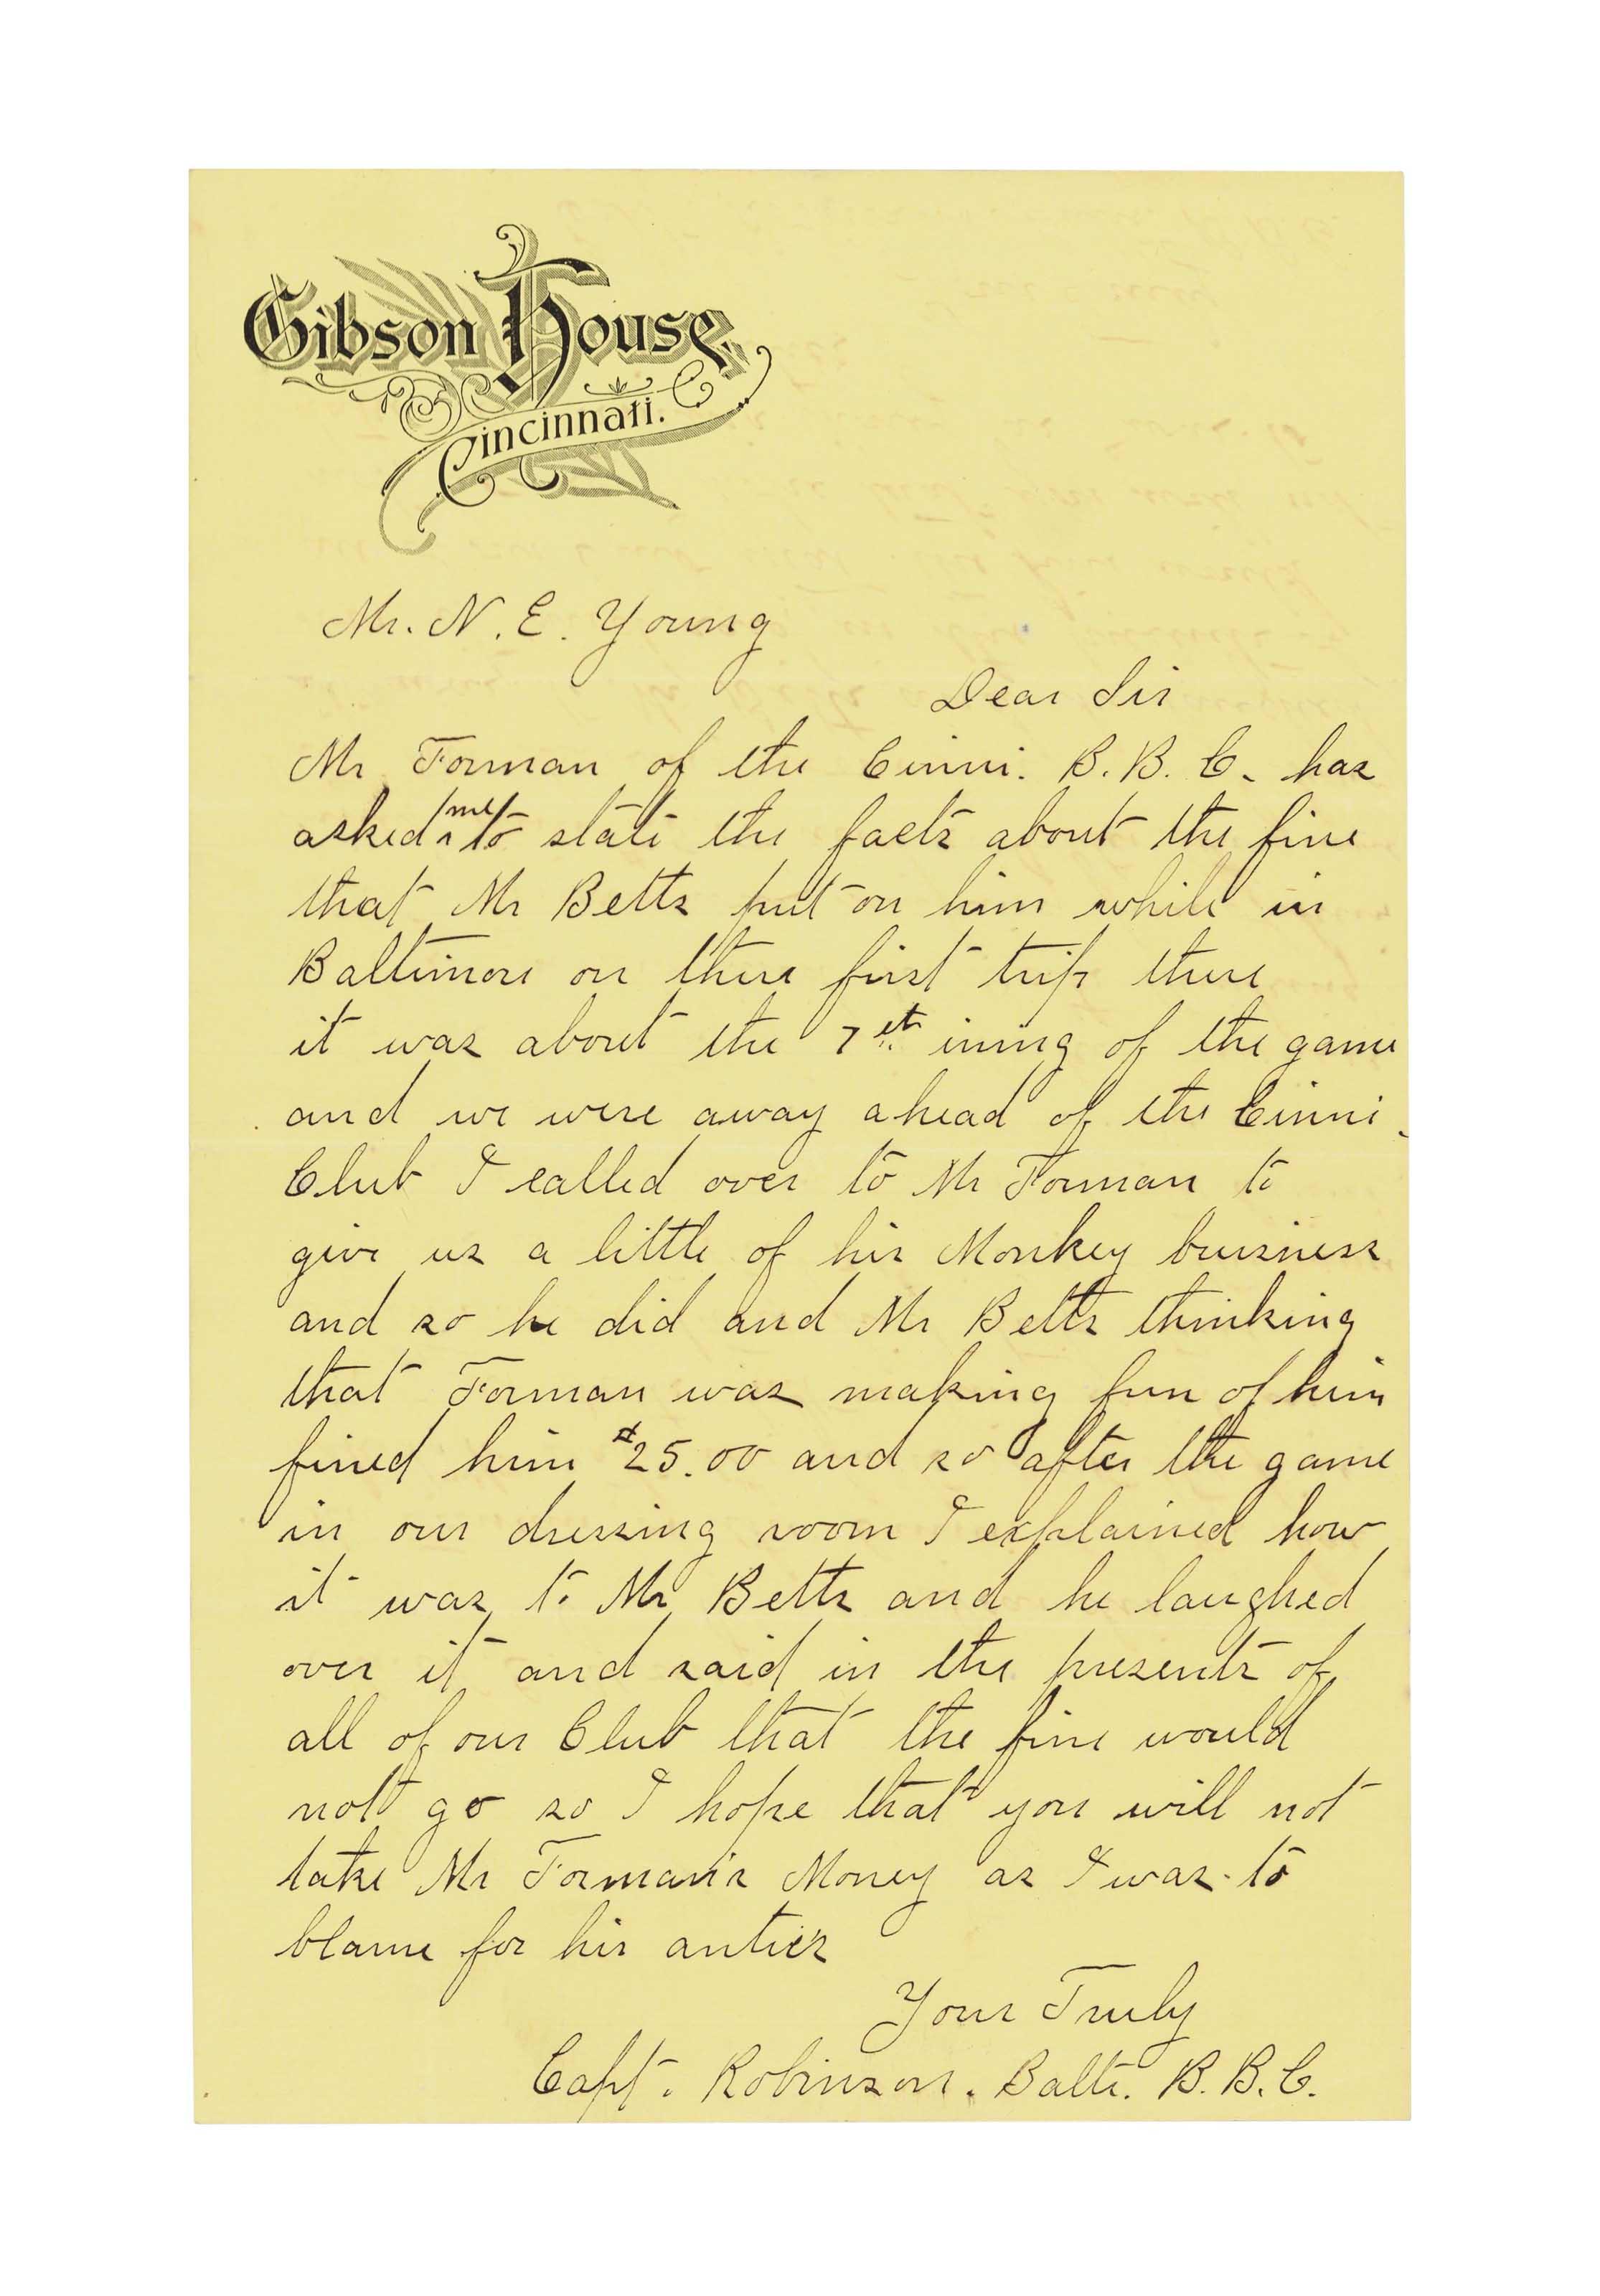 Gibson House
Cincinnati.
Mr. N. E. Young
Dear Sir
Mr Forman of the Cinni. B. B. C. has
asked me to state the facts about the fine
that Mr Betts put on him while in
Baltimore on there first trip there
it was about the 7th ining of the game
and we were away ahead of the Cinni.
Club I called over to Mr Forman to
give us a little of his Monkey buisness
and so he did and Mr Betts thinking
that Forman was making fun of him
fined him $25.00 and so after the game
in our dressing room I explained how
it was to Mr Betts and he laughed
over it and said in the presents of
all of our Club that the fine would
not go so I hope that you will not
take Mr Forman's Money as I was to
blame for his antics
Your Truly
Capt. Robinson. Balti. B. B. C.